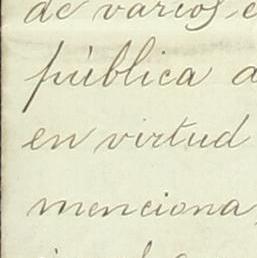 de varios
pública
en virtud
menciona